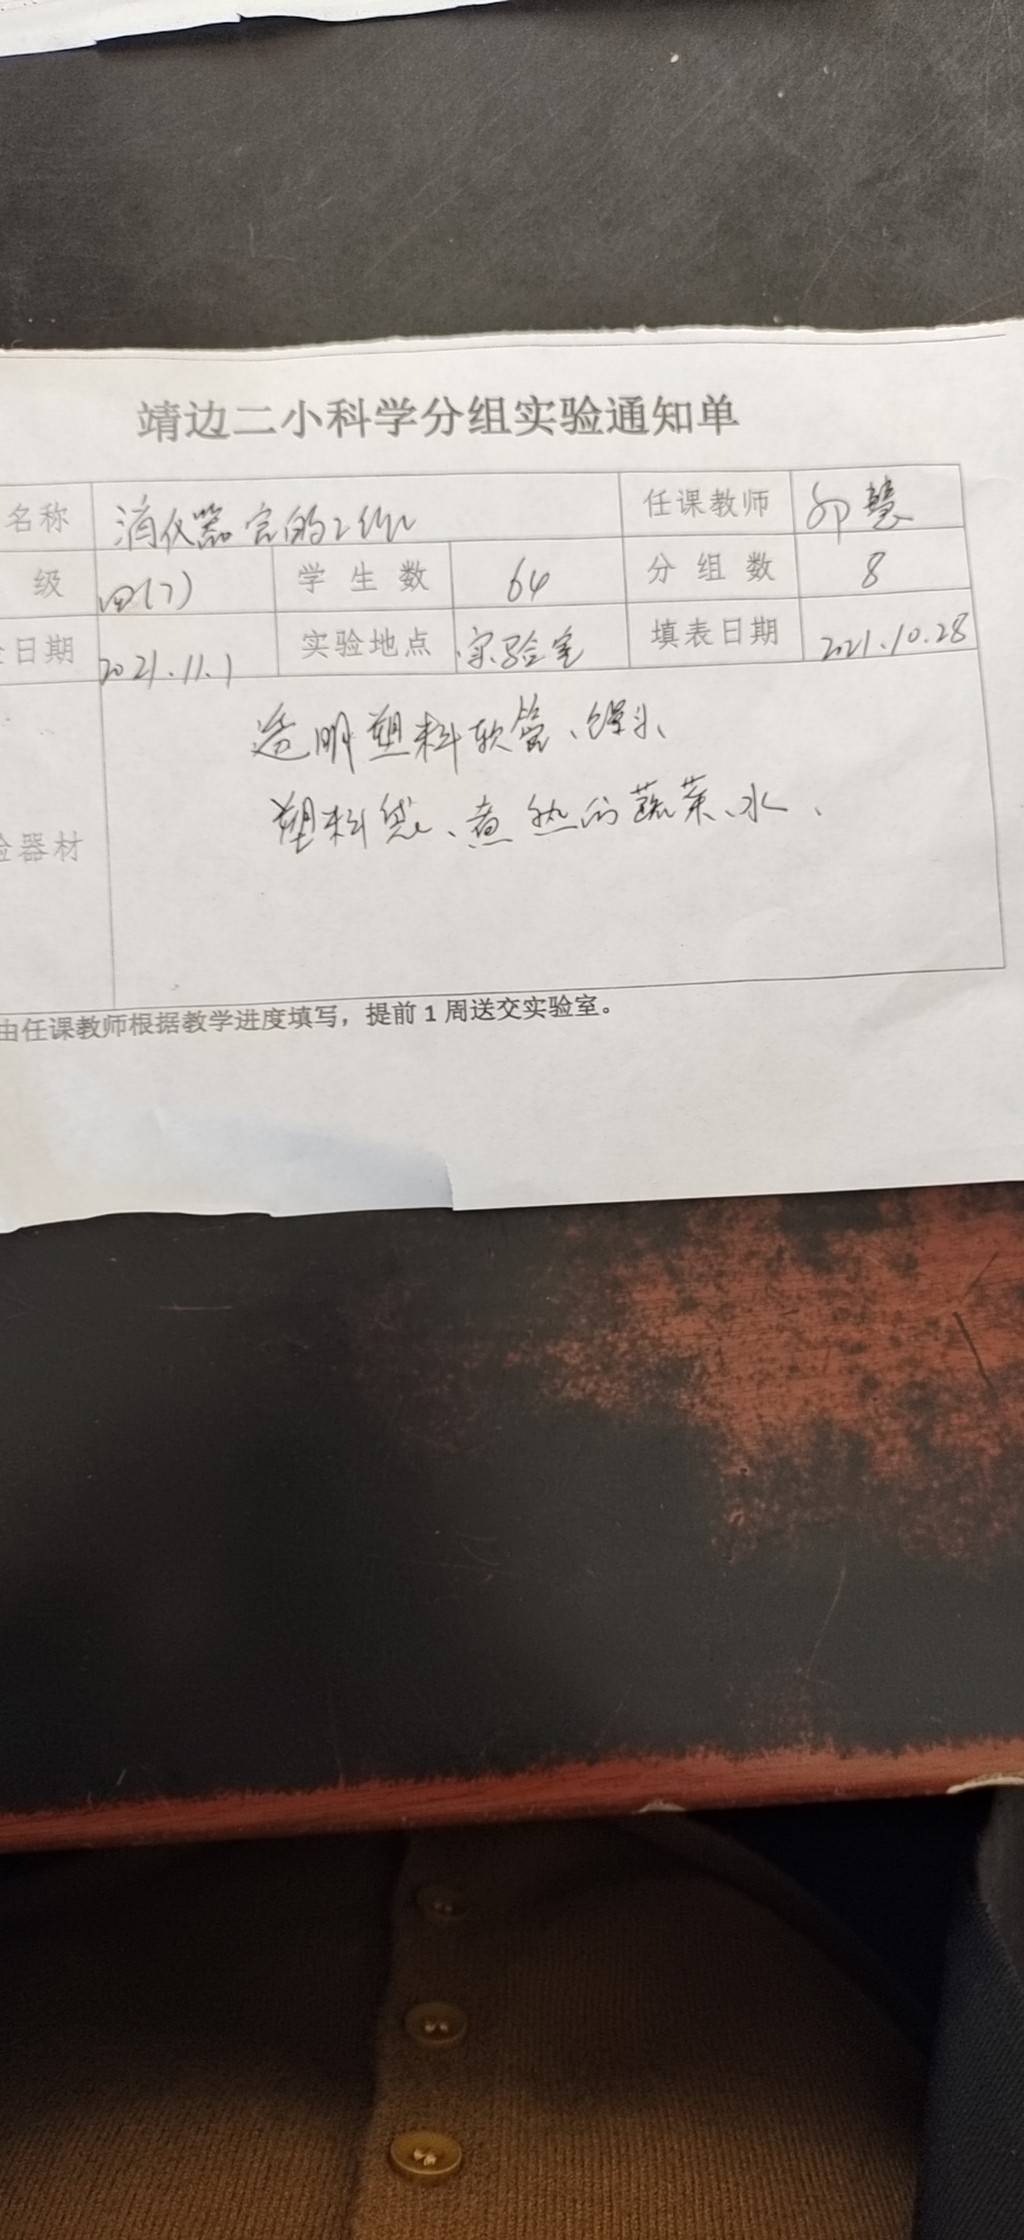 靖边二小科学分组实验通知单
名称 消化器官的工作 任课教师 郭慧
级 四(7) 学生数 64 分组数 8
日期 2021.11.1 实验地点 实验室 填表日期 2021.10.28
透明塑料软管、馒头、
验器材 塑料袋、煮熟的蔬菜、水、
由任课教师根据教学进度填写，提前1周送交实验室。